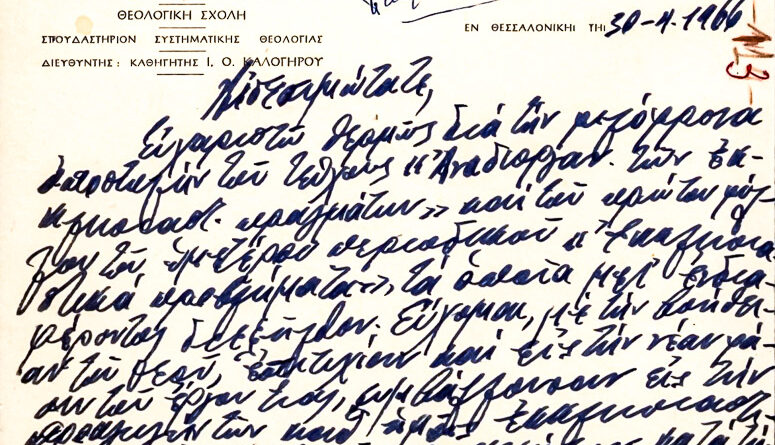 ΘΕΟΛΟΓΙΚΗ ΣΧΟΛΗ
ΣΠΟΥΔΑΣΤΗΡΙΟΝ ΣΥΣΤΗΜΑΤΙΚΗΣ ΘΕΟΛΟΓΙΑΣ
ΔΙΕΥΘΥΝΤΗΣ : ΚΑΘΗΓΗΤΗΣ Ι. Ο. ΚΑΛΟΓΗΡΟΥ
ΕΝ ΘΕΣΣΑΛΟΝΙΚΗΙ ΤΗΙ 30-4-1966
-113-
Αἰδεσιμώτατε,
Εὐχαριστῶ θερμῶς διὰ τὴν
ἀποστολὴν τοῦ τεύχους «Ἀναδιοργάν. τῶν ἐκ-
κλησιαστ. πραγμάτων» καὶ τοῦ πρώτου φύλ-
λου τοῦ ὑμετέρου περιοδικοῦ «Ἐκκλησια-
στικὰ προβλήματα», τὰ ὁποῖα μετ' ἐνδια-
φέροντος διεξῆλθον. Εὔχομαι, μὲ τὴν βοήθει-
αν τοῦ Θεοῦ, ἐπιτυχίαν καὶ εἰς τὴν νέαν φά-
σιν τοῦ ἔργου σας, συμβάλλουσαν εἰς τὴν
τῶν καθ' ἡμᾶς ἐκκλησιαστ.